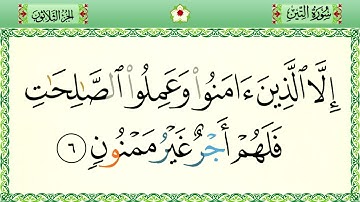 سُورَةُ التِّينِ
الجُزْءُ الثَّلَاثُونَ
إِلَّا ٱلَّذِينَ ءَامَنُوا۟ وَعَمِلُوا۟ ٱلصَّـٰلِحَـٰتِ
فَلَهُمْ أَجْرٌ غَيْرُ مَمْنُونٍ ٦